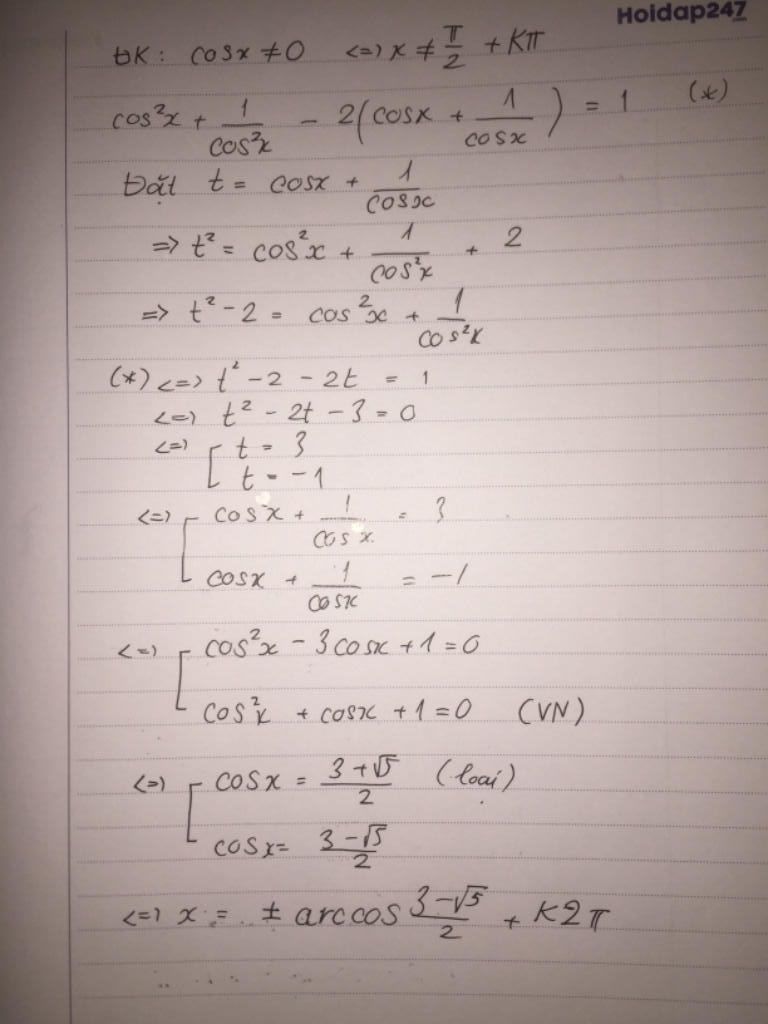 Hoidap247
ĐK: cosx ≠ 0 <=> x ≠ π/2 + Kπ
cos²x + 1/cos²x - 2(cosx + 1/cosx) = 1 (*)
Đặt t = cosx + 1/cosx
=> t² = cos²x + 1/cos²x + 2
=> t² - 2 = cos²x + 1/cos²x
(*) <=> t² - 2 - 2t = 1
<=> t² - 2t - 3 = 0
<=> [ t = 3
t = -1
<=> [ cosx + 1/cosx = 3
cosx + 1/cosx = -1
<=> [ cos²x - 3cosx + 1 = 0
cos²x + cosx + 1 = 0 (VN)
<=> [ cosx = (3+√5)/2 (loại)
cosx = (3-√5)/2
<=> x = ± arccos (3-√5)/2 + K2π